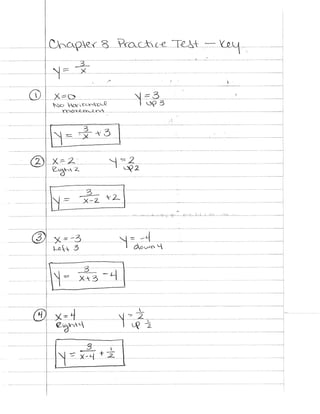 Chapter 8 Practice Test – Key
y = 3/x
① x=0 y=3
No Horizontal movement up 3
y = 3/x + 3
② x=2 y=2
Right 2 up 2
y = 3/x-2 + 2
③ x=-3 y=-4
Left 3 down 4
y = 3/x+3 - 4
④ x=4 y=1/2
Right 4 up 1/2
y = 3/x-4 + 1/2